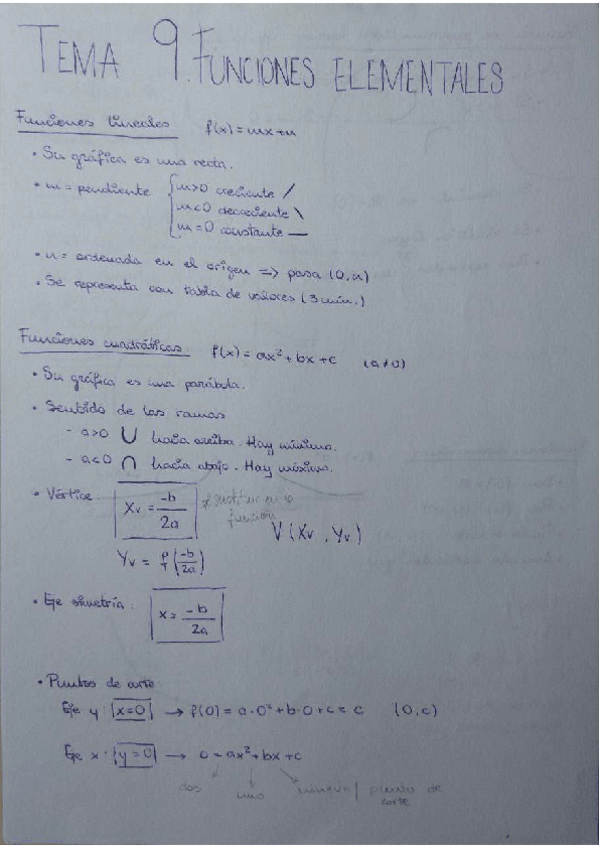 TEMA 9. FUNCIONES ELEMENTALES
Funciones lineales f(x)=mx+n
• Su gráfica es una recta.
• m = pendiente { m>0 creciente /
m<0 decreciente \
m=0 constante —
• n = ordenada en el origen => pasa (0,n)
• Se representa con tabla de valores (3 mín.)
Funciones cuadráticas f(x)=ax²+bx+c (a≠0)
• Su gráfica es una parábola.
• Sentido de las ramas
- a>0 ∪ hacia arriba. Hay mínimo.
- a<0 ∩ hacia abajo. Hay máximo.
• Vértice: Xv = -b/2a en la función V(Xv, Yv)
Yv = f(-b/2a)
• Eje simetría: x = -b/2a
• Puntos de corte:
Eje y: x=0 → f(0) = a·0²+b·0+c = c (0,c)
Eje x: y=0 → 0=ax²+bx+c
dos uno ningún punto de corte